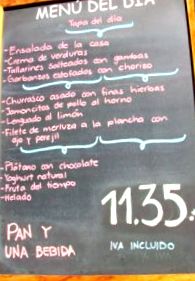 MENÚ DEL DÍA
Tapa del día
-Ensalada de la casa
-Crema de verduras
-Tallarines salteados con gambas
-Garbanzos estofados con chorizo
-Churrasco asado con finas hierbas
-Jamoncitos de pollo al horno
-Lenguado al limón
-Filete de merluza a la plancha con
ajo y perejil
-Plátano con chocolate
-Yoghurt natural
-Fruta del tiempo
-Helado
11.35.-
PAN Y
UNA BEBIDA
IVA INCLUIDO